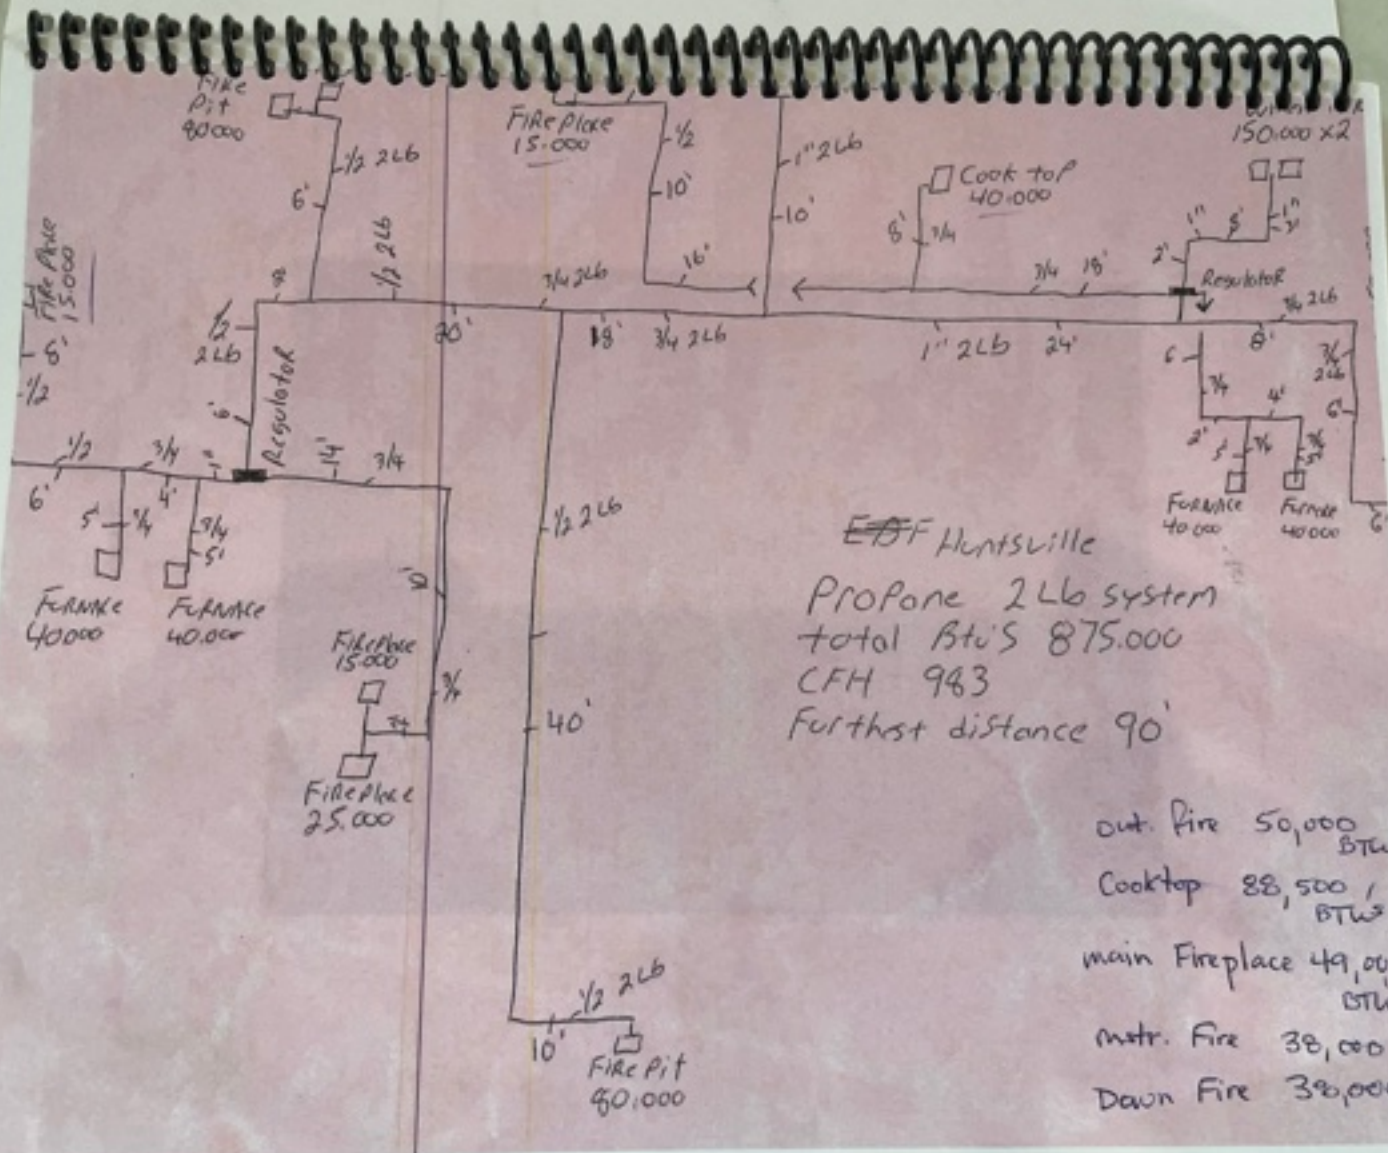 Fire
Pit
80000
1/2 2Lb
6'
Fireplace
15.000
1/2
10'
16'
1" 2Lb
10'
Cook top
40.000
8'
3/4
3/4
18'
150.000 x2
1"
8'
1"
2'
2'
Regulator
3/4 2Lb
8'
3/4
2Lb
6'
6'
Fire Place
15.000
8'
1/2
1/2
2Lb
8
1/2 2Lb
20'
3/4 2Lb
18'
3/4 2Lb
1" 2Lb
24'
6
3/4
4'
2'
5'
3/4
3/4
Furnace
40000
Furnace
40000
6'
Regulator
1/2
6'
3/4
4'
1"
14'
3/4
5'
3/4
3/4
5'
Furnace
40000
Furnace
40.000
3/4
Fireplace
15.000
3/4
Fireplace
25.000
1/2 2Lb
40'
1/2 2Lb
10'
Fire Pit
80.000
Huntsville
Propane 2Lb system
total Btu's 875.000
CFH 983
Furthest distance 90'
out. fire 50,000
BTU
Cooktop 88,500
BTUs
main Fireplace 49,00
BTU
mstr. Fire 38,000
Down Fire 38,00